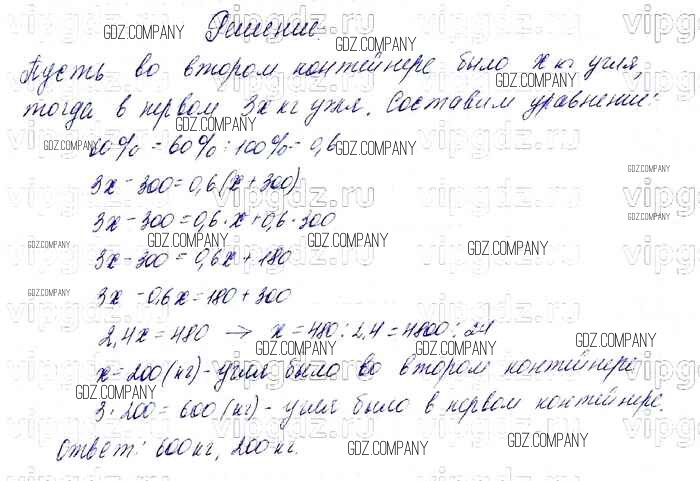 Решение
Пусть во втором контейнере было x кг угля,
тогда в первом 3x кг угля. Составим уравнение:
60% = 60% : 100% = 0,6
3x - 300 = 0,6 (x + 300)
3x - 300 = 0,6 · x + 0,6 · 300
3x - 300 = 0,6x + 180
3x - 0,6x = 180 + 300
2,4x = 480 → x = 480 : 2,4 = 4800 : 24
x = 200 (кг) - угля было во втором контейнере
3 · 200 = 600 (кг) - угля было в первом контейнере.
Ответ: 600 кг, 200 кг.
GDZ.COMPANY
vipgdz.ru